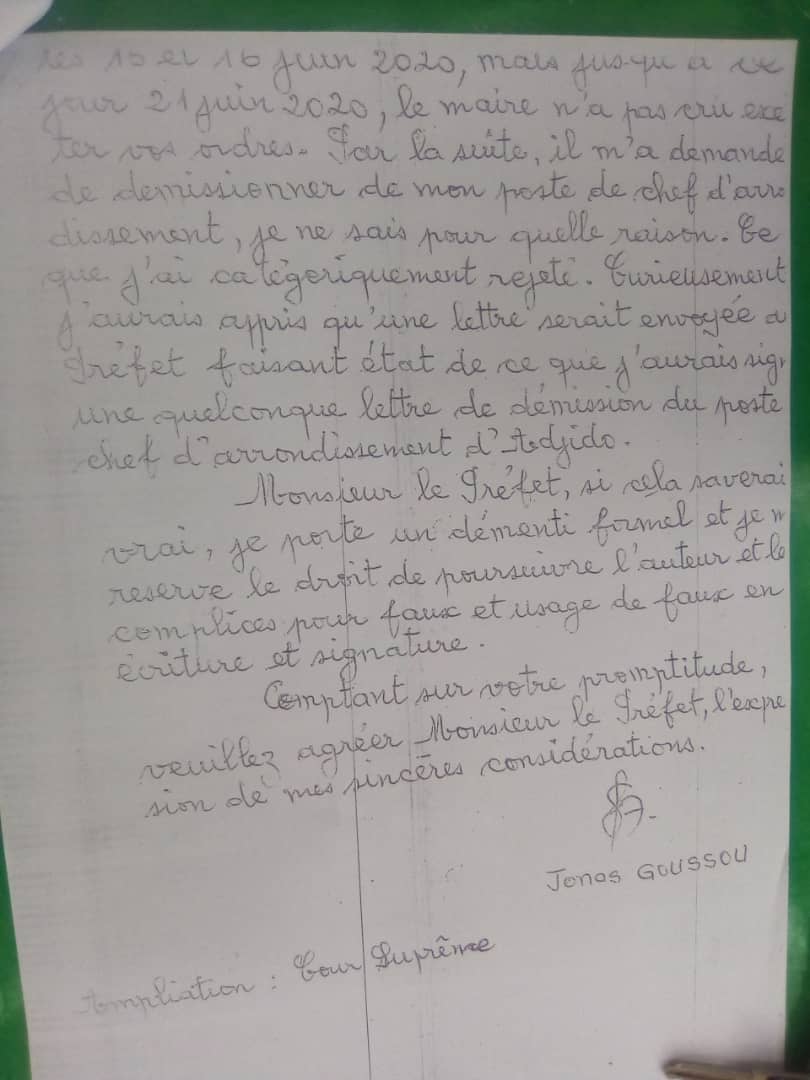 les 15 et 16 juin 2020, mais jusqu'à ce
jour 21 juin 2020, le maire n'a pas cru exé
ter vos ordres. Par la suite, il m'a demandé
de demissionner de mon poste de chef d'arro
dissement, je ne sais pour quelle raison. Ce
que j'ai catégoriquement rejeté. Curieusement
j'aurais appris qu'une lettre serait envoyée a
Préfet faisant état de ce que j'aurais sig
une quelconque lettre de démission du poste
chef d'arrondissement d'Adjido.
Monsieur le Préfet, si cela saverai
vrai, je porte un démenti formel et je m
reserve le droit de poursuivre l'auteur et le
complices pour faux et usage de faux en
écriture et signature.
Comptant sur votre promptitude,
veuillez agréer Monsieur le Préfet, l'expre
sion de mes sincères considérations.
Jonas GOUSSOU
Ampliation : Cour Suprême